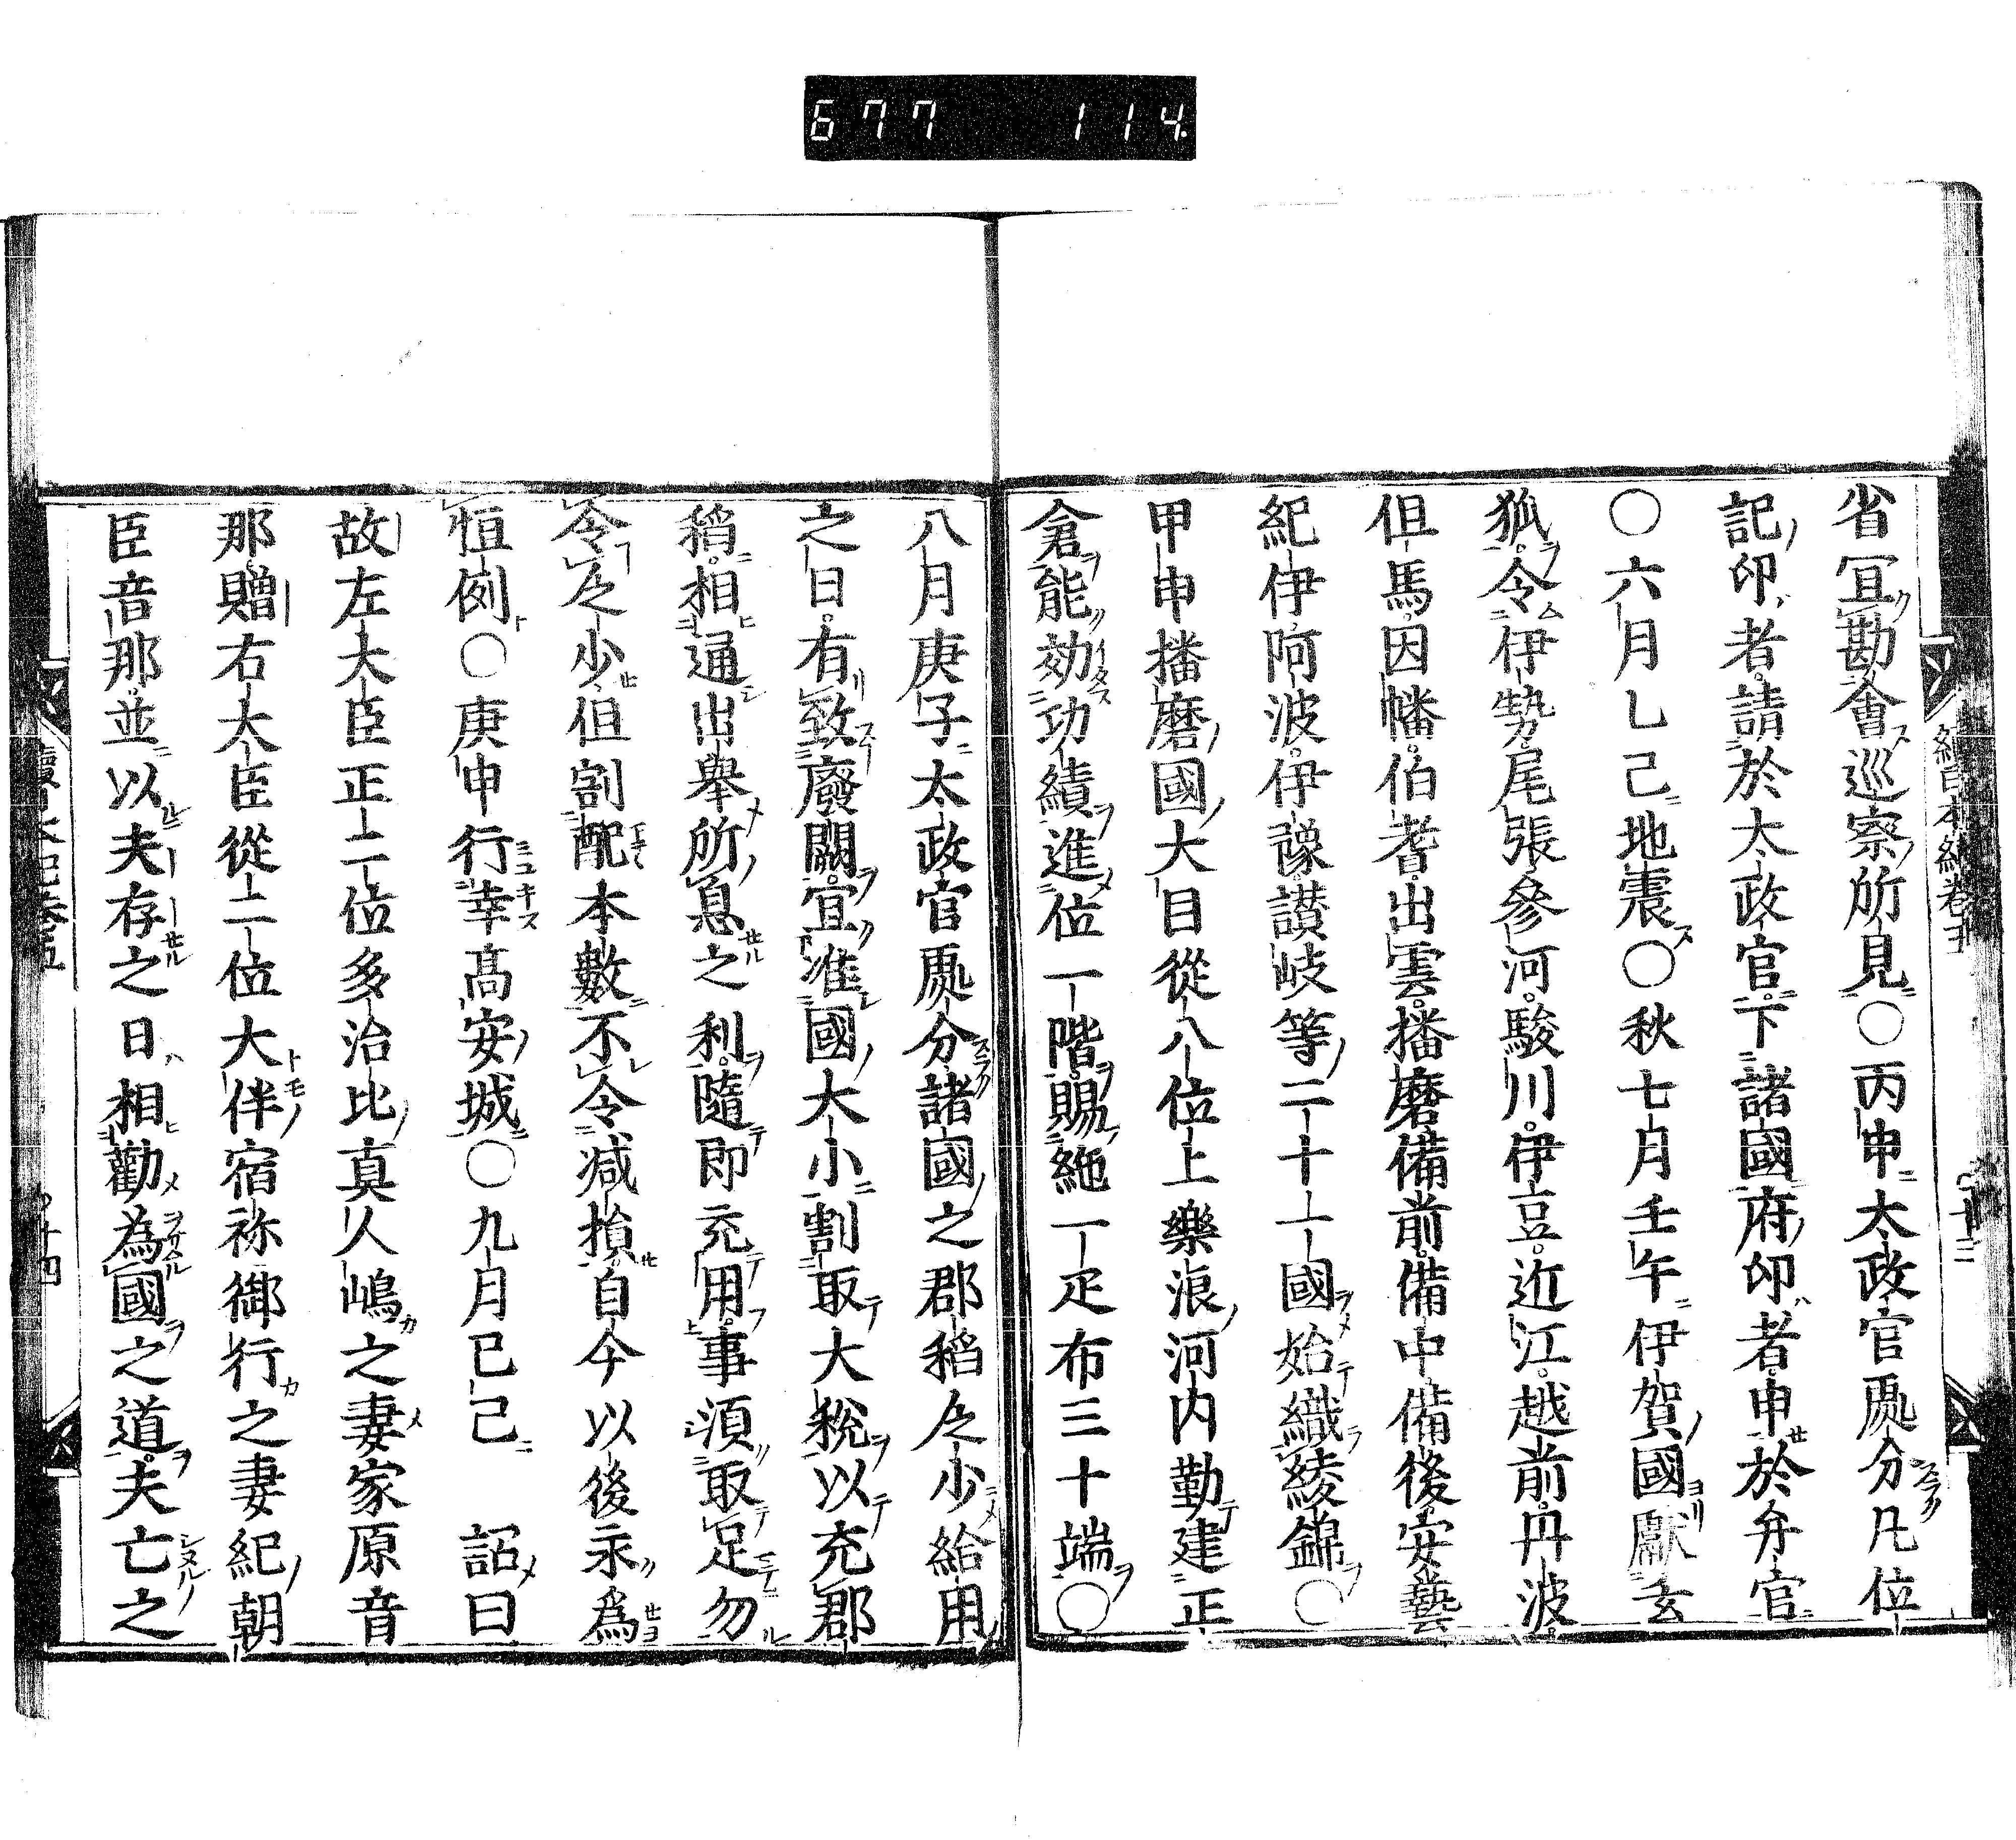 677 114
省冝勘會巡察所見○丙申太政官處分凡位
記印者請於太政官下諸國府印者申於弁官
○六月乚己地震○秋七月壬午伊賀國獻玄
狐令伊勢尾張參河駿川伊豆近江越前丹波
但馬因幡伯耆出雲播磨備前備中備後安藝
紀伊阿波伊豫讃岐等二十一國始織綾錦○
甲申播磨國大目從八位上樂浪河内勤建正
倉能効功績進位一階賜絁一疋布三十端○
八月庚子太政官處分諸國之郡稻乏少給用
之日有致廢闕宜准國大小割取大税以充郡
稻相通出舉所息之利隨即充用事湏取足勿
令乏少但割配本數不令减損自今以後永爲
恒例○庚申行幸髙安城○九月已己 詔曰
故左大臣正二位多治比真人嶋之妻家原音
那贈右大臣從二位大伴宿祢御行之妻紀朝
臣音那並以夫存之日相勸為國之道夫亡之